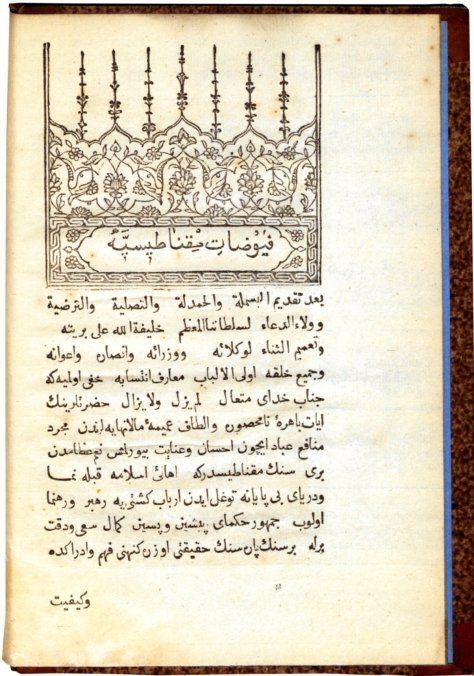 فیوضات مقناطیسیه
بعد تقدیم البسملة والحمدلة والتصلیة والترضیة
وولاء الدعاء لسلطاننا المعظم خلیفة الله علی بریته
وتعمیم الثناء لوکلائه ووزرائه وانصاره واعوانه
وجمیع خلقه اولی الالباب معارف انتسابه خفی اولمیه که
جناب خدای متعال لم یزل ولا یزال حضرتلرینك
ایات باهرهٔ نامحصور والطاف عمیمهٔ مالانهایه لریندن مجرد
منافع عباد ایچون احسان وعنایت بیورلمش نعم عظامدن
بری سنك مقناطیسدرکه اهالئ اسلامه قبله نما
ودریای بی پایانه توغل ایدن ارباب کشتی یه رهبر ورهنما
اولوب جمهور حکمای پیشین وپسین کمال سعی ودقت
برله بو سنك حقیقتی اوزره کنهنی فهم وادراکده
وکیفیت